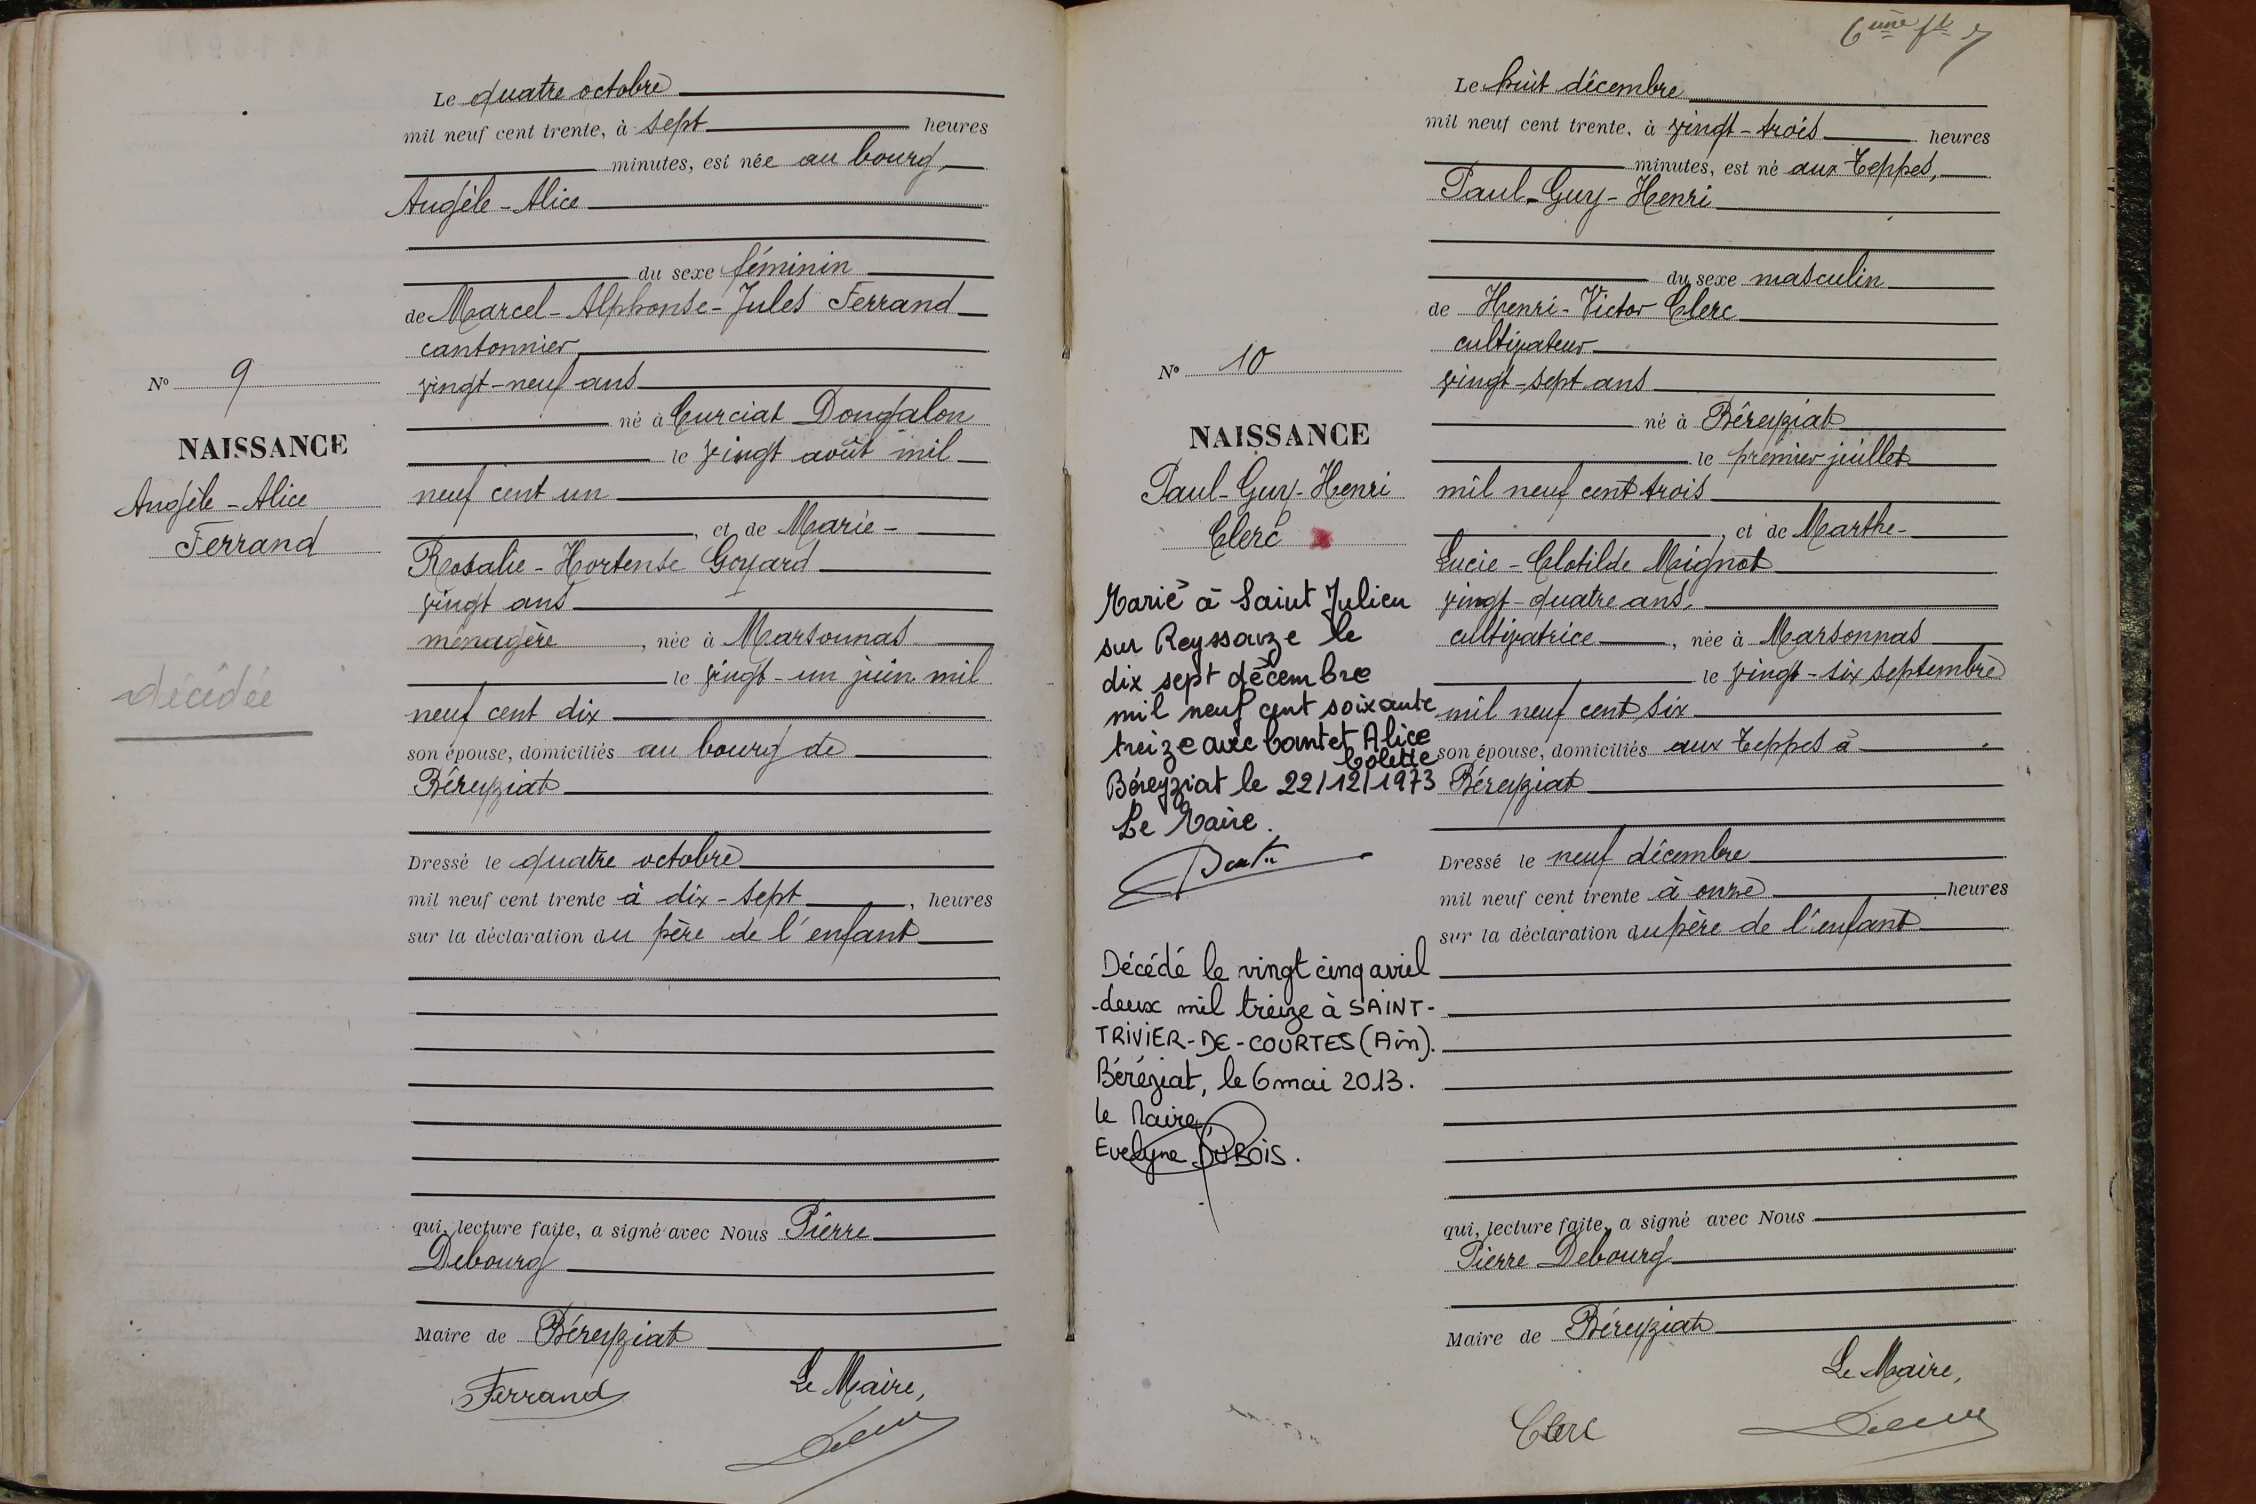 Le quatre octobre
mil neuf cent trente, à sept heures
minutes, est née au bourg,
Angèle - Alice
du sexe féminin
de Marcel - Alphonse - Jules Ferrand
cantonnier
vingt - neuf ans
né à Curciat Dongalon
le vingt août mil
neuf cent un
, et de Marie -
Rosalie - Hortense Goyard
vingt ans
ménagère, née à Marsonnas
le vingt - un juin mil
neuf cent dix
son épouse, domiciliés au bourg de
Béreyziat
Dressé le quatre octobre
mil neuf cent trente à dix - sept, heures
sur la déclaration du père de l'enfant
qui, lecture faite, a signé avec Nous Pierre
Debourg
Maire de Béreyziat
Ferrand Le Maire,
N° 9
NAISSANCE
Angèle - Alice
Ferrand
décédée
6ème ft
Le huit décembre
mil neuf cent trente, à vingt - trois heures
minutes, est né aux Teppes,
Paul - Guy - Henri
du sexe masculin
de Henri - Victor Clerc
cultivateur
vingt - sept ans
né à Béreyziat
le premier juillet
mil neuf cent trois
, et de Marthe -
Lucie - Clotilde Mignot
vingt - quatre ans,
cultivatrice, née à Marsonnas
le vingt - six septembre
mil neuf cent six
son épouse, domiciliés aux Teppes à
Béreyziat
Dressé le neuf décembre
mil neuf cent trente à onze heures
sur la déclaration du père de l'enfant
qui, lecture faite, a signé avec Nous
Pierre Debourg
Maire de Béreyziat
Le Maire,
Clerc
N° 10
NAISSANCE
Paul - Guy - Henri
Clerc
Marié à Saint Julien
sur Reyssouze le
dix sept décembre
mil neuf cent soixante
treize avec Contet Alice
Colette
Béreyziat le 22/12/1973
Le Maire.
Décédé le vingt cinq avril
deux mil treize à SAINT-
TRIVIER-DE-COURTES (Ain).
Béréziat, le 6 mai 2013.
le Maire,
Evelyne DUBOIS.